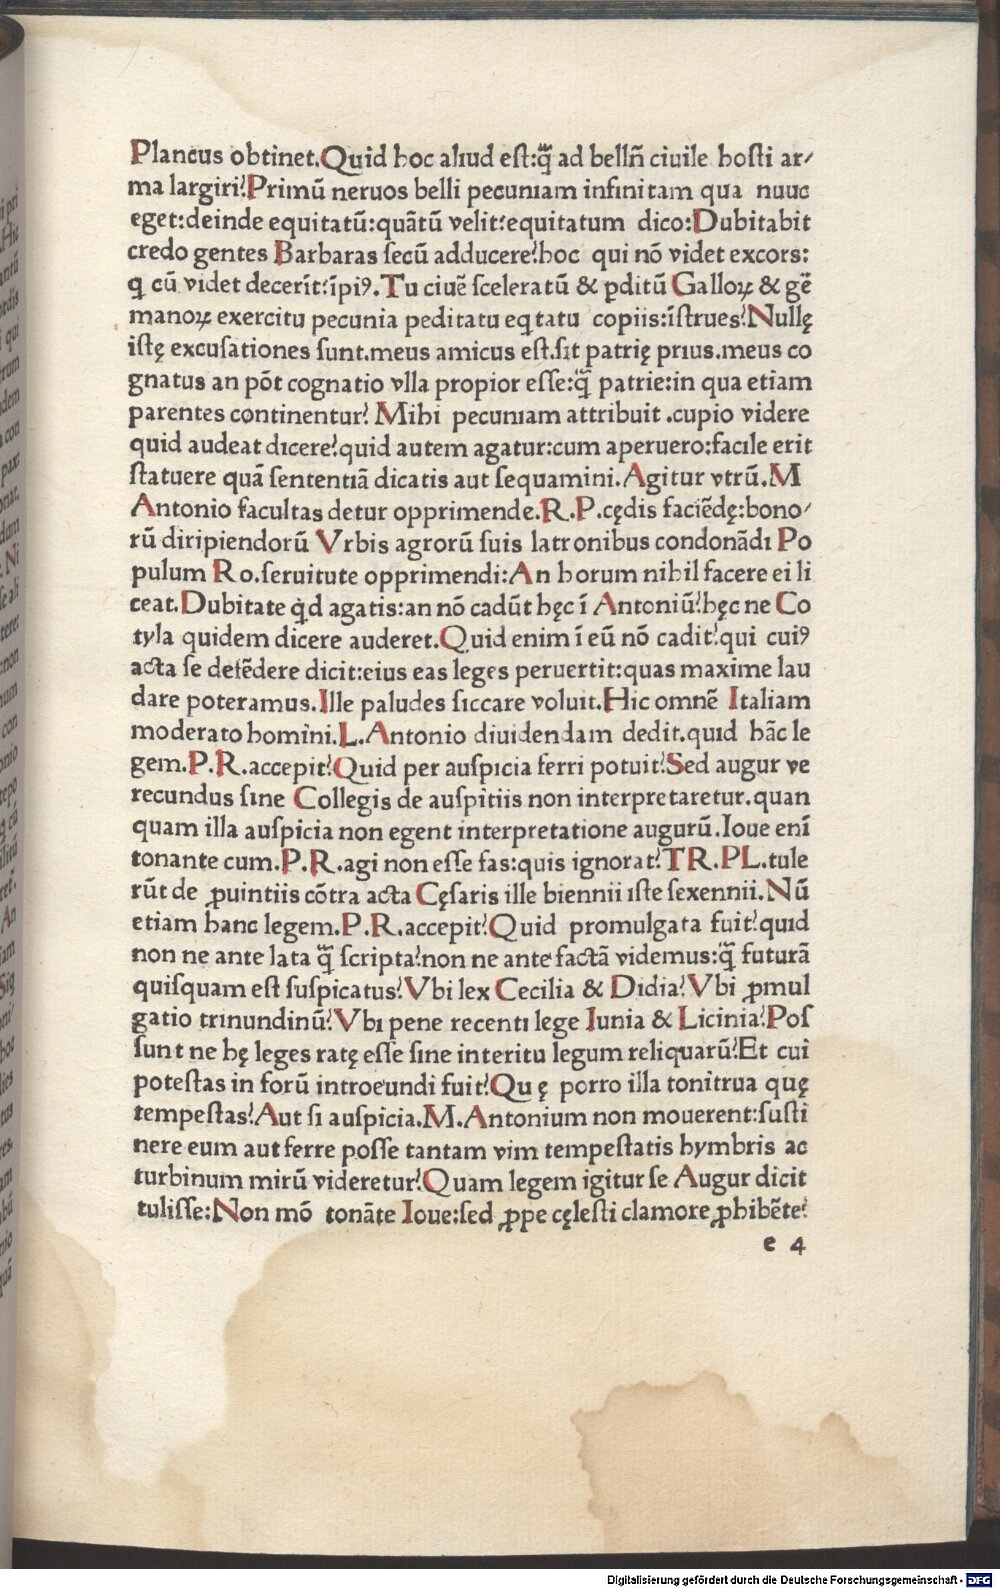 Plancus obtinet.Quid hoc aliud est:q̃ ad bellũ ciuile hosti ar⸗
ma largiri?Primũ neruos belli pecuniam infinitam qua nuuc
eget:deinde equitatũ:quãtũ velit:equitatum dico:Dubitabit
credo gentes Barbaras secũ adducere?hoc qui nõ videt excors:
q cũ videt decerit:ĩpiꝰ.Tu ciuẽ sceleratũ & ꝑditũ Galloꝝ & gẽ
manoꝝ exercitu pecunia peditatu eqtatu copiis:ĩstrues?Nullę
istę excusationes sunt.meus amicus est.sit patrię prius.meus co
gnatus an põt cognatio vlla propior esse:q̃ patrie:in qua etiam
parentes continentur? Mihi pecuniam attribuit .cupio videre
quid audeat dicere?quid autem agatur:cum aperuero:facile erit
statuere quã sententiã dicatis aut sequamini.Agitur vtrũ.M
Antonio facultas detur opprimende.R.P.cędis faciẽdę:bono⸗
rũ diripiendorũ Vrbis agrorũ suis latronibus condonãdi Po
pulum Ro.seruitute opprimendi:An horum nihil facere ei li
ceat.Dubitate qd agatis:an nõ cadũt hęc ĩ Antoniũ?hęc ne Co
tyla quidem dicere auderet.Quid enim ĩ eũ nõ cadit?qui cuiꝰ
acta se defẽdere dicit:eius eas leges peruertit:quas maxime lau
dare poteramus.Ille paludes siccare voluit.Hic omnẽ Italiam
moderato homini.L.Antonio diuidendam dedit.quid hãc le
gem.P.R.accepit?Quid per auspicia ferri potuit?Sed augur ve
recundus sine Collegis de auspitiis non interpretaretur.quan
quam illa auspicia non egent interpretatione augurũ.Ioue enĩ
tonante cum.P.R.agi non esse fas:quis ignorat?TR.PL.tule
rũt de ꝓuintiis cõtra acta Cęsaris ille biennii iste sexennii.Nũ
etiam hanc legem.P.R.accepit?Quid promulgata fuit?quid
non ne ante lata q̃ scripta?non ne ante factã videmus:q̃ futurã
quisquam est suspicatus?Vbi lex Cecilia & Didia?Vbi ꝓmul
gatio trinundinũ?Vbi pene recenti lege Iunia & Licinia?Pos
sunt ne hę leges ratę esse sine interitu legum reliquarũ?Et cui
potestas in forũ introeundi fuit?Qu ę porro illa tonitrua quę
tempestas?Aut si auspicia.M.Antonium non mouerent:susti
nere eum aut ferre posse tantam vim tempestatis hymbris ac
turbinum mirũ videretur?Quam legem igitur se Augur dicit
tulisse:Non mõ tonãte Ioue:sed ꝓpe cęlesti clamore ꝓhibẽte?
e 4
Digitalisierung gefördert durch die Deutsche Forschungsgemeinschaft - DFG